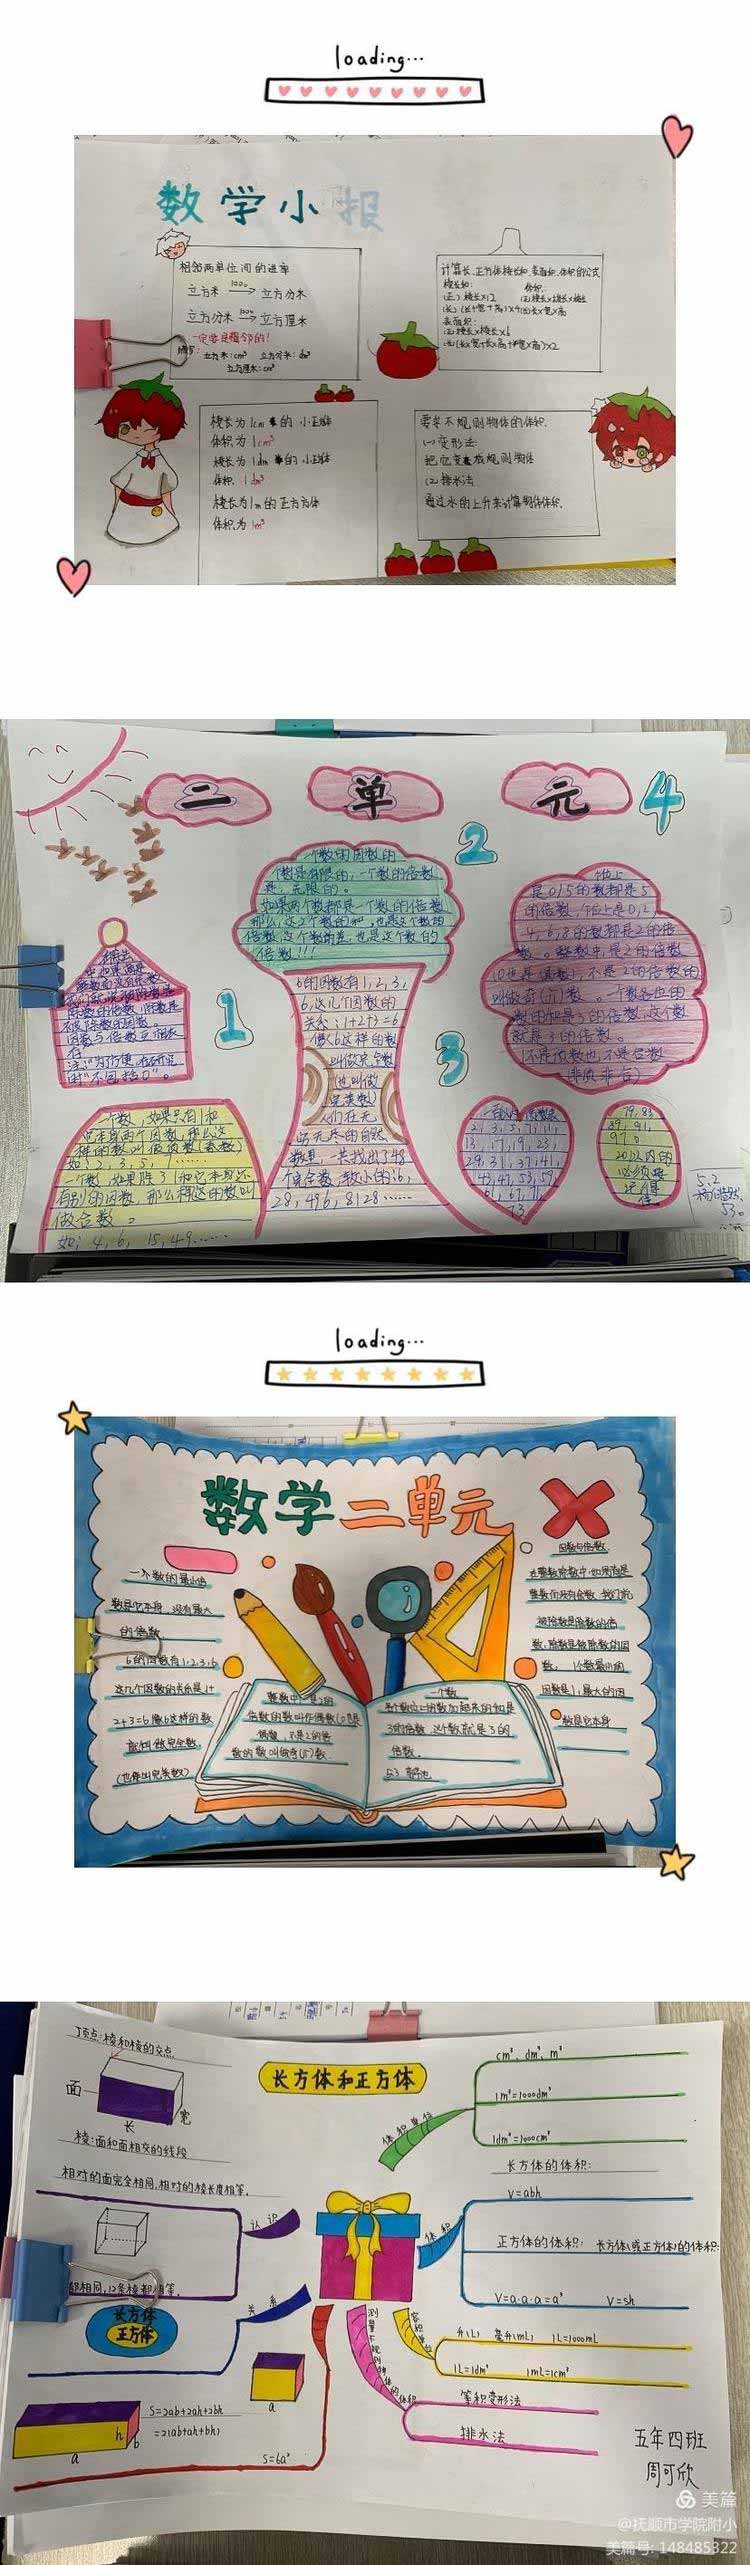 loading...
数学小报
相邻两单位间的进率
立方米 1000 立方分米
立方分米 1000 立方厘米
一定要是相邻的!
立方米:cm³ 立方分米:dm³
立方厘米:cm³
计算长、正方体棱长和、表面积、体积的公式
棱长和:
体积:
(正) 棱长×12
表面积:
(正) 棱长×棱长×6
棱长为1cm的小正方体
体积为1cm³
棱长为1dm的小正方体
体积 1dm³
棱长为1m的正方体
体积为1m³
要求不规则物体的体积.
(一)变形法:
把它变成规则物体
(2)排水法
通过水的上升来计算物体体积.
二 单 元
1
2
3
4
一个数的因数的
个数是有限的,一个数的倍数
是无限的。
如果两个数都是一个数的倍数
那么,这2个数的和,也是这个数的
倍数,这个数的差,也是这个数的
倍数!!!
6的因数有1,2,3,
6,这几个因数的
关系:1+2+3=6
像6这样的数
叫做完全数
(也叫做
完美数)
人们在无
穷无尽的自然
数里,一共找出了48
个完全数,较小的:6,
28,496,8128……
个位上
是0、5的数都是5
的倍数,个位上是0,2,
4,6,8的数都是2的倍
数。整数中,是2的倍数
(0也是偶数),不是2的倍数的
叫做奇(jī)数。一个数各位的
数的和是3的倍数,这个数
就是3的倍数。
1不是质数也不是合数
(非质非合)
因数与倍数互相依
存
一个数,如果只有1和
它本身两个因数,那么这
样的数叫做质数(素数)
如:2,3,5,7……
一个数,如果除了1和它本身还
有别的因数,那么称这的数叫
做合数。
如:4,6,15,49……
2,3,5,7,11,
13,17,19,23,
29,31,37,41,
43,47,53,59,
61,67,71,
73,
79,83,
89,91,
97。
20以内的
必须要
记得
住
loading...
数学二单元
一个数的最小倍
数是它本身,没有最大
的倍数
6的因数有1,2,3,6
这几个因数的关系是1+
2+3=6像6这样的数
就叫做完全数
(也作叫完美数)
整数中,是2的
倍数的数叫作偶数(0也是
偶数,不是2的倍
数的数叫做奇(jī)数.
一个数
各个数位上的数加起来的和是
3的倍数,这个数就是3的
倍数.
因数与倍数.
在整数除法中,如果商是
整数而没有余数,我们就
被除数是除数的倍
数,除数是被除数的因
数. 一个数最小的
因数是1,最大的因
数是它本身
长方体和正方体
顶点:棱和棱的交点
面
长
宽
棱:面和面相交的线段
相对的面完全相同,相对的棱长度相等.
认识
都相同,12条棱都相等.
长方体
正方体
关系
S=2ab+2ah+2bh
=2(ab+ah+bh)
h
b
a
a
S=6a²
体积单位
cm³、dm³、m³
1m³=1000dm³
1dm³=1000cm³
体积
长方体的体积:
V=abh
正方体的体积: 长方体(或正方体)的体积:
V=a·a·a=a³ V=sh
容积单位
升(L) 毫升(mL) 1L=1000mL
1L=1dm³ 1mL=1cm³
测量不规则物体的体积
等积变形法
排水法
五年四班
周可欣
美篇
@抚顺市学院附小
美篇号: 148485322